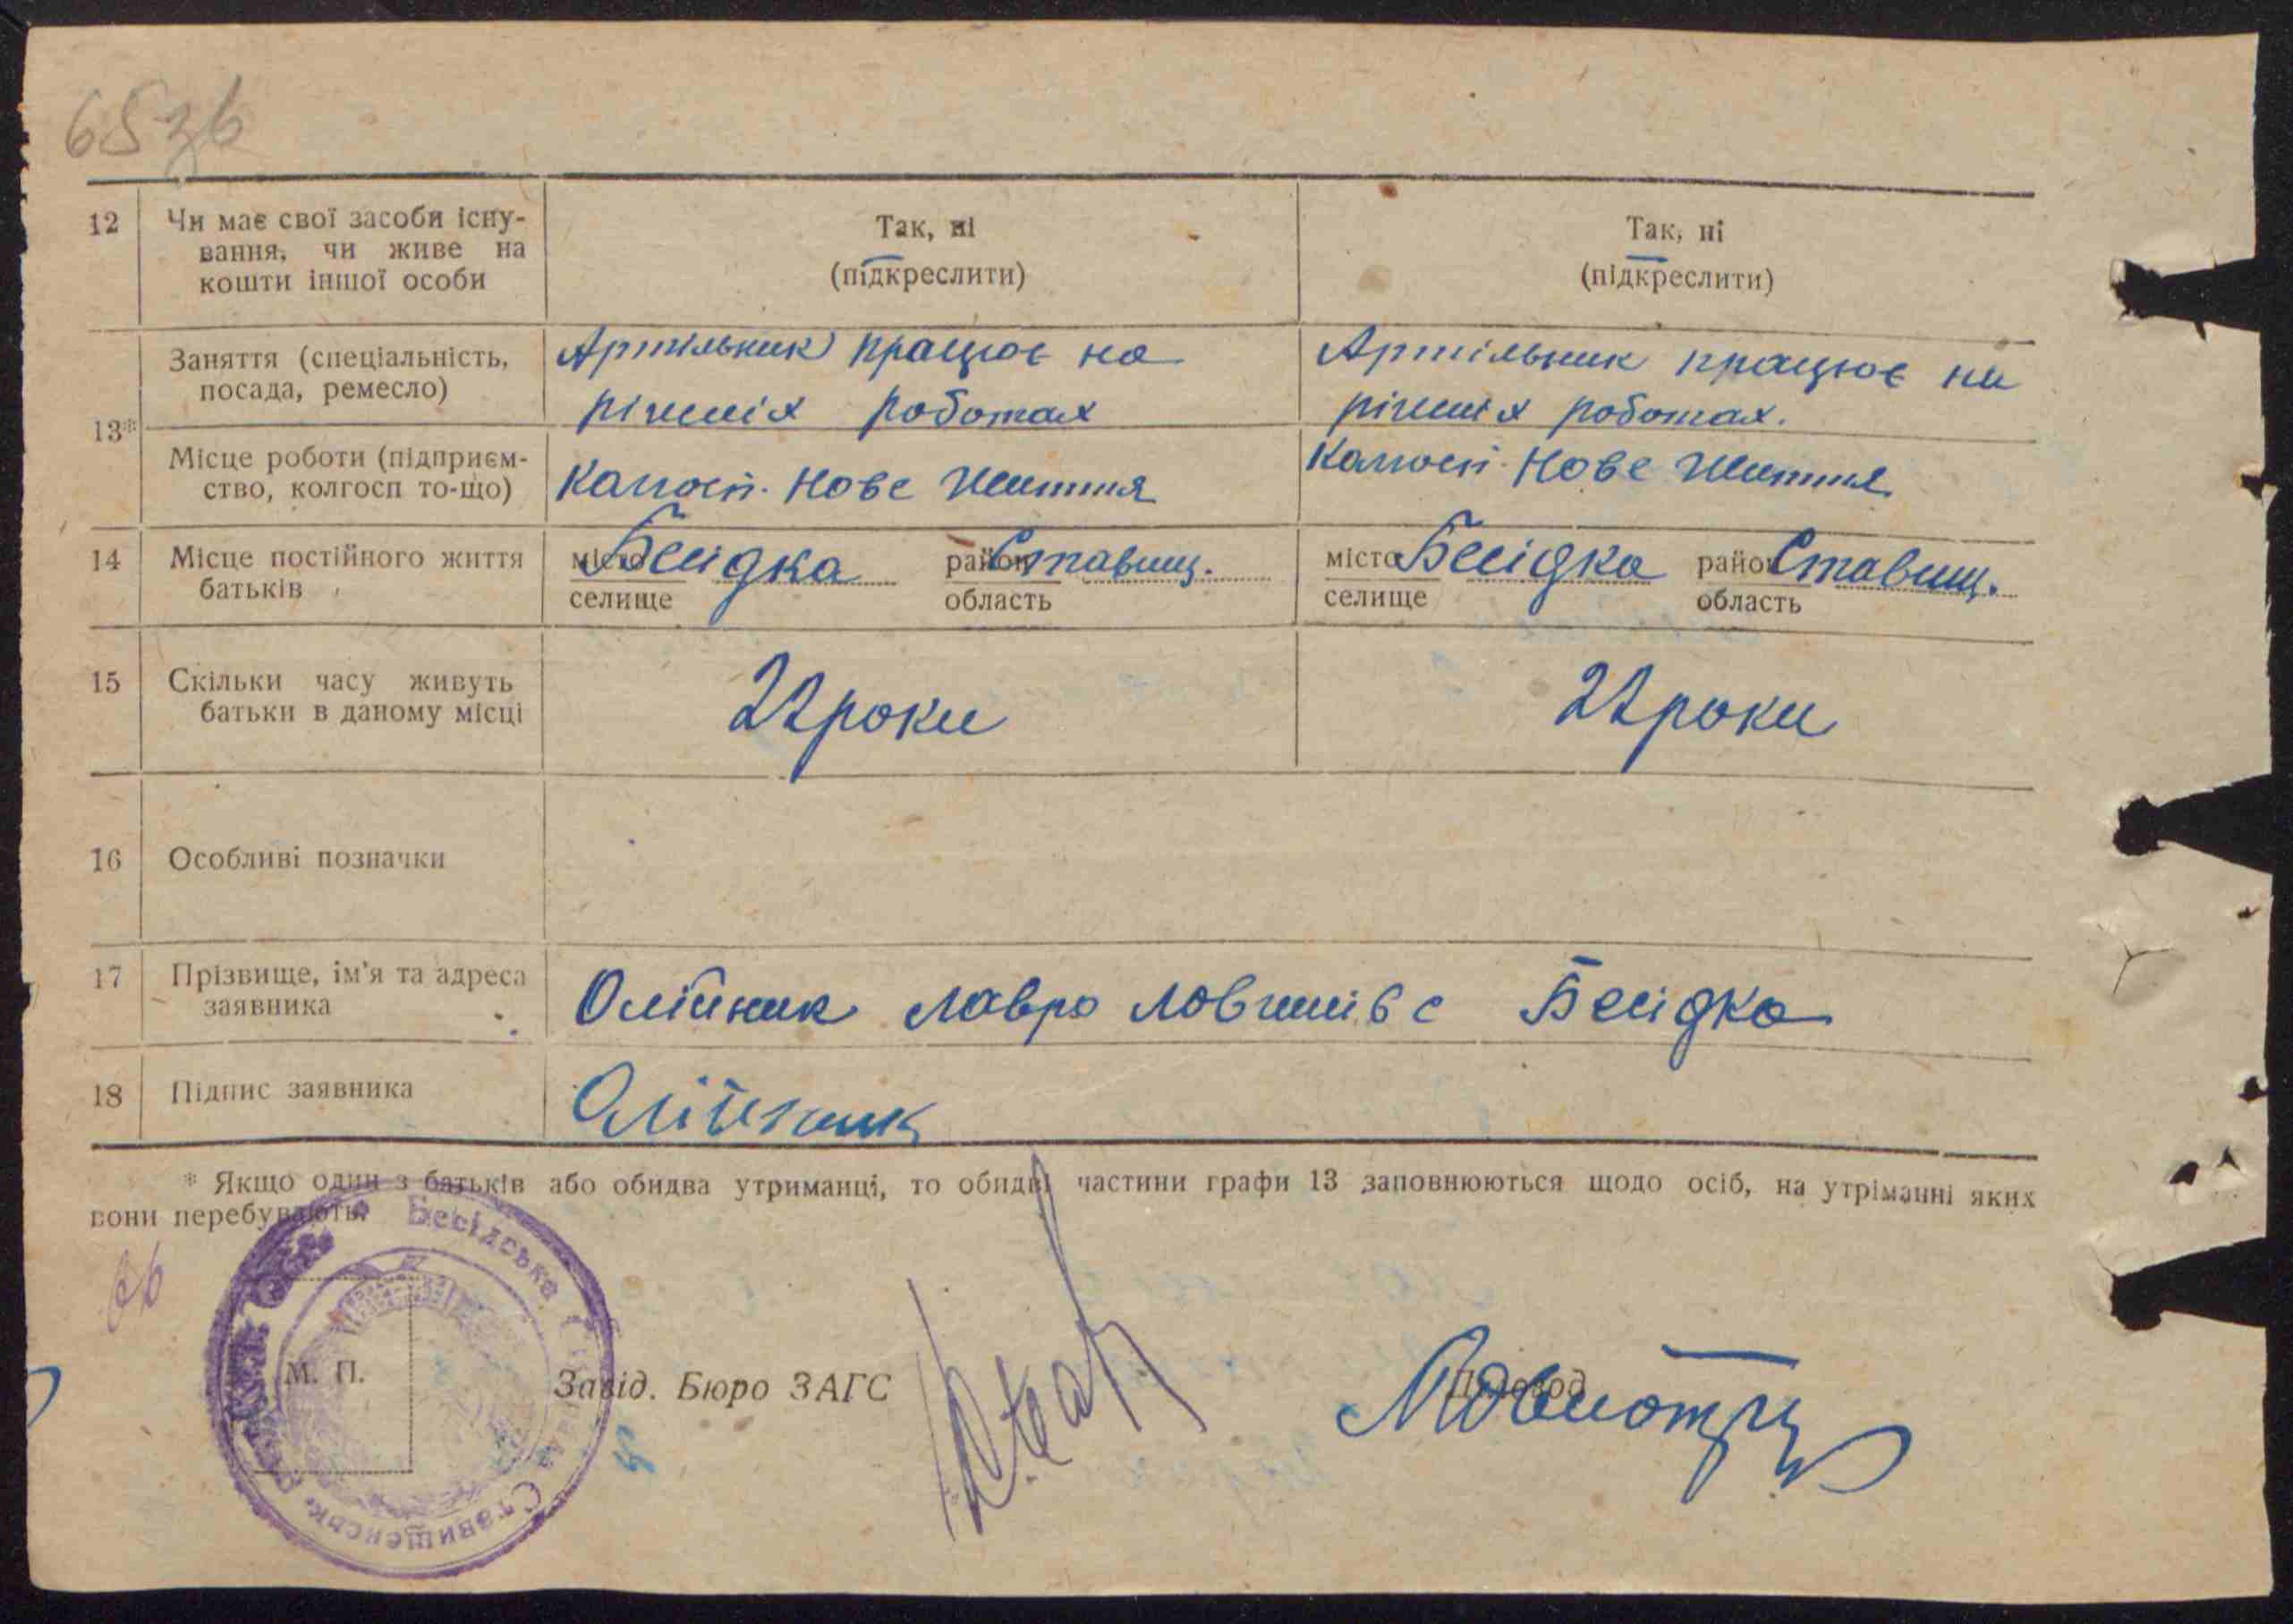 65зв
12 Чи має свої засоби існу- Так, ні Так, ні
вання, чи живе на (підкреслити) (підкреслити)
кошти іншої особи
13* Заняття (спеціальність, Артільник працює на Артільник працює на
посада, ремесло) ріжніх роботах ріжніх роботах.
Місце роботи (підприєм- Колгосп. Нове Життя Колгосп. Нове Життя
ство, колгосп то-що)
14 Місце постійного життя місто Бесідка район Ставищ. місто Бесідка район Ставищ.
батьків селище область селище область
15 Скільки часу живуть 22 роки 22 роки
батьки в даному місці
16 Особливі позначки
17 Прізвище, ім'я та адреса Олійник Лавро с Бесідка
заявника
18 Підпис заявника Олійник
* Якщо один з батьків або обидва утриманці, то обидві частини графи 13 заповнюються щодо осіб, на утріманні яких
вони перебувають.
Бесідська
Ставищенськ.
М. П.
Завід. Бюро ЗАГС Діловод